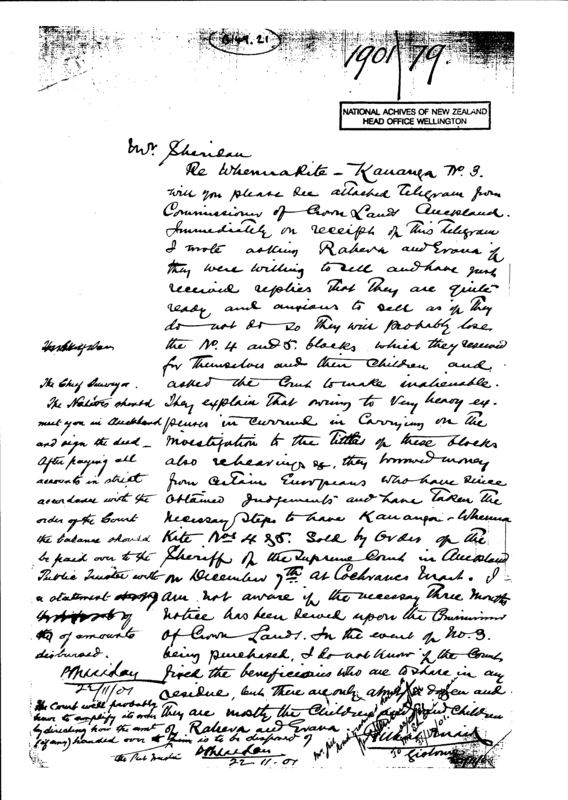 B 49. 21.
1901/79.
NATIONAL ACHIVES OF NEW ZEALAND
HEAD OFFICE WELLINGTON
Mr. Sheridan
Re Whenuakite - Kauanga No. 3.
Will you please see attached Telegram from
Commissioner of Crown Lands Auckland.
Immediately on receipt of this Telegram
I wrote asking Rahera and Erana if
they were willing to sell and have just
received replies that they are quite
ready and anxious to sell as if they
do not do so they will probably lose
the No. 4 and 5. blocks which they reserved
for themselves and their Children and
asked the Court to make inalienable.
They explain that owing to very heavy ex-
penses incurred in Carrying on the
Investigation to the titles of these blocks
also rehearings &c, they borrowed money
from certain Europeans who have since
obtained Judgements and have taken the
necessary steps to have Kauanga-Whenua
Kite Nos 4 & 5. Sold by order of the
Sheriff of the Supreme Court in Auckland
on December 7th at Cochranes Mart. I
am not aware if the necessary three months
notice has been served upon the Commissioner
of Crown Lands. In the event of No. 3.
being purchased, I do not know if the Court
fixed the beneficiaries who are to share in any
residue, but there are only about dozen and
they are mostly the Children and Grand Children
of Rahera and Erana
The Chief Surveyor.
The Natives should
meet you in Auckland
and sign the deed -
After paying all
accounts in strict
accordance with the
order of the Court
the balance should
be paid over to the
Public Trustee with
a statement
of amounts
disbursed.
P Sheridan
22/11/01
The Court will probably
have to amplify its order
by directing how the amt
(if any) handed over to
the Pub Trustee is to be disposed of
P Sheridan
22-11-01
Gisborne